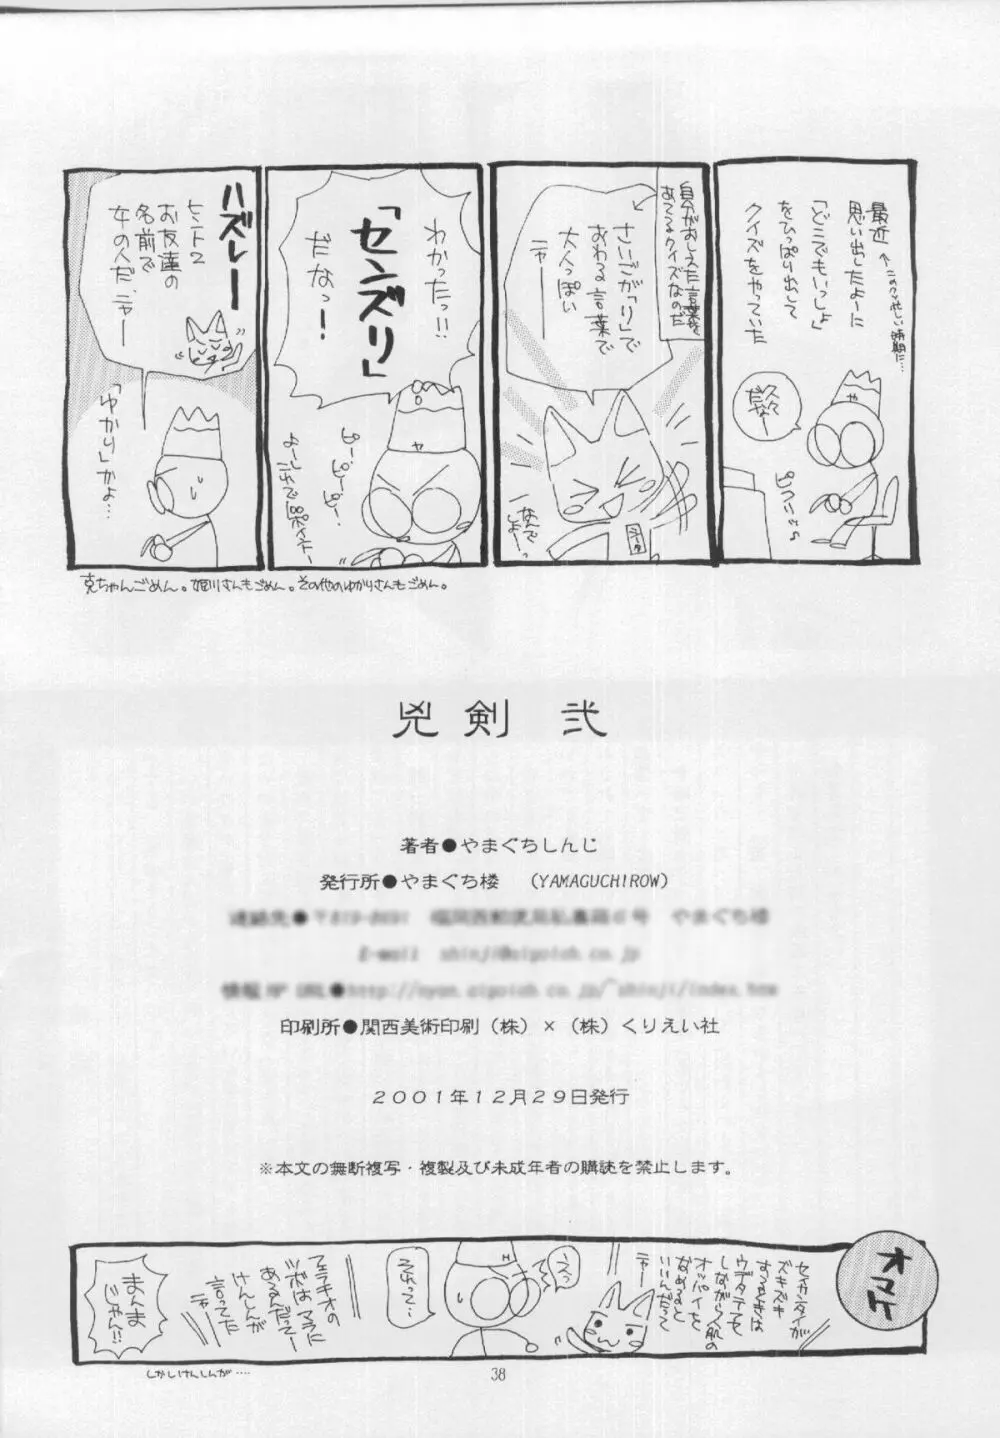 最近
思い出したよーに
「どこでもいっしょ」
をひっぱり出して
クイズをやっていた
久々
だなー
ピッ
自分がおしえた言葉を
あてるクイズなのだ
さいごが「り」で
おわる言葉で
大人っぽい
ニャー
なんで
しょー
わかったっ!!
「センズリ」
だなっ!
ヤ
ハズレー
ヒント2
お友達の
名前で
女の人だ、ニャー
「ゆかり」かよ…
克ちゃんごめん。姫川さんもごめん。その他のゆかりさんもごめん。
兇剣 弐
著者●やまぐちしんじ
発行所●やまぐち楼 (YAMAGUCHIROW)
印刷所●関西美術印刷(株)×(株)くりえい社
2001年12月29日発行
※本文の無断複写・複製及び未成年者の購読を禁止します。
オマケ
セイカンタイが
ズキズキ
するときは
ウデタテ
しながら人肌の
オッパイを
なめると
いいんだって
ニャー
えっ
それって…
言ってた
ニャー
まんま
じゃん!!
しかしけんしんが…
38